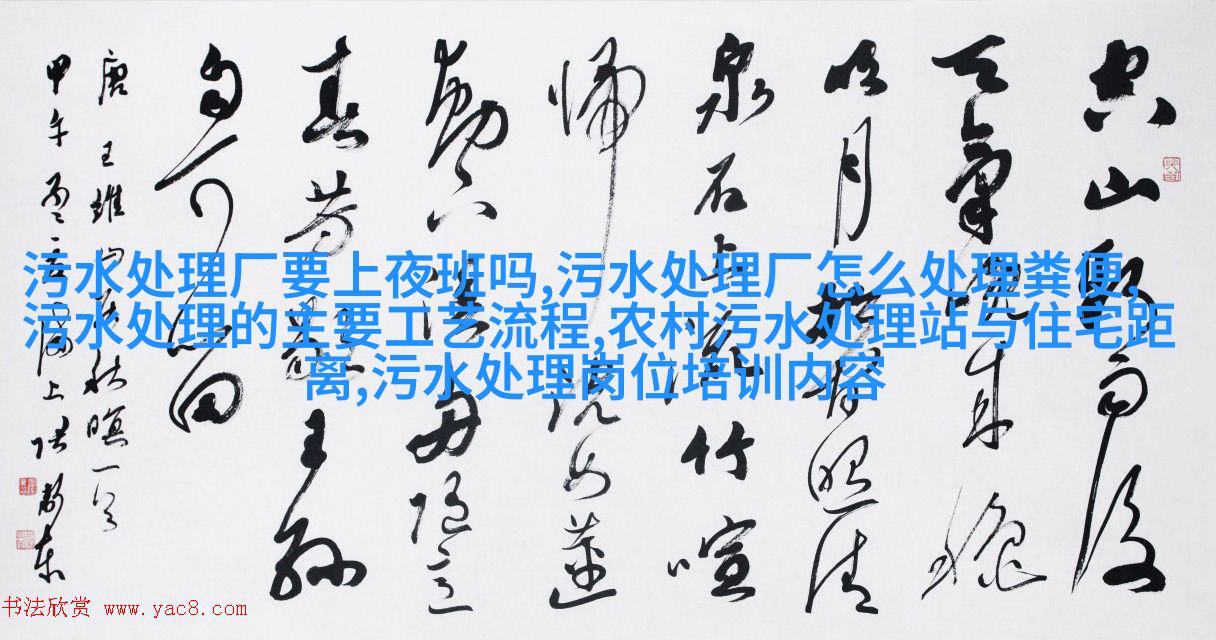 空山新雨後
天氣晚来秋
明月松間照清
泉石上流竹喧
歸浣女蓮
動下漁舟隨意
春芳歇王孫
自可留
唐王維山居秋暝一首
甲午孟夏海上
污水处理厂要上夜班吗,污水处理厂怎么处理粪便,
污水处理的主要工艺流程,农村污水处理站与住宅距
离,污水处理岗位培训内容
书法欣赏 www.yac8.com